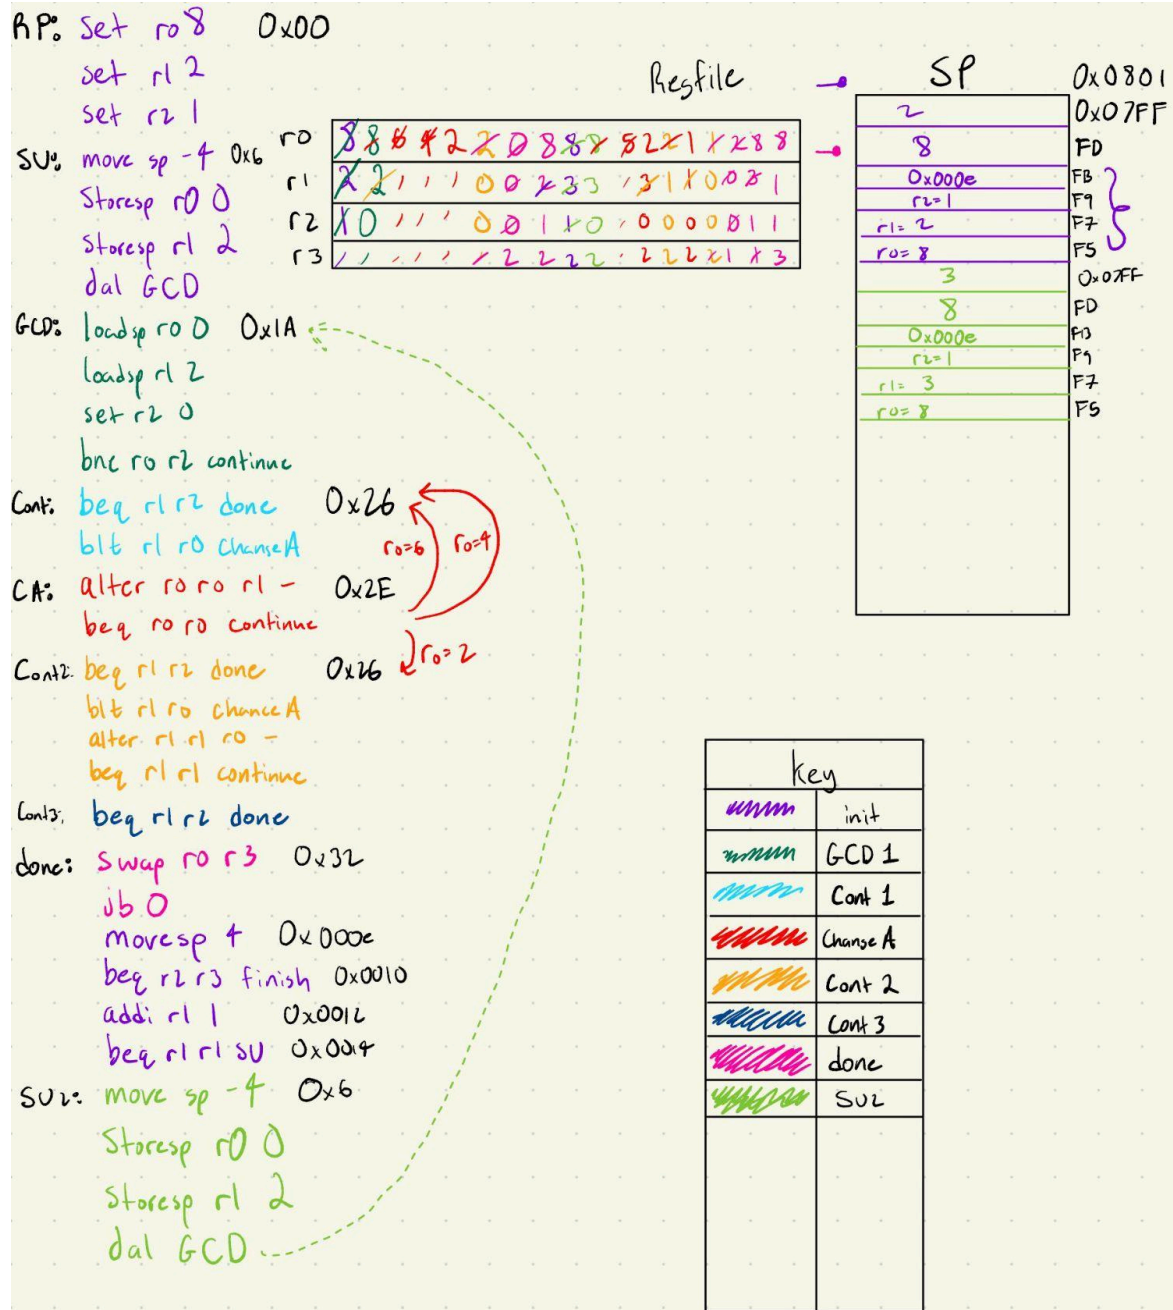 RP: set r0 8 0x00
set r1 2
set r2 1
SU: move sp -4 0x6
Storesp r0 0
Storesp r1 2
dal GCD
GCD: loadsp r0 0 0x1A
loadsp r1 2
set r2 0
bne r0 r2 continue
Cont: beq r1 r2 done 0x26
blt r1 r0 changeA
r0=6 r0=4
CA: alter r0 r0 r1 - 0x2E
beq r0 r0 continue
r0=2
Cont2: beq r1 r2 done 0x26
blt r1 r0 changeA
alter r1 r1 r0 -
beq r1 r1 continue
Cont3: beq r1 r2 done
done: swap r0 r3 0x32
jb 0
movesp 4 0x000e
beq r2 r3 finish 0x0010
addi r1 1 0x0012
beq r1 r1 SU 0x0014
SU2: move sp -4 0x6
Storesp r0 0
Storesp r1 2
dal GCD
Regfile
r0 8 8 6 4 2 2 0 8 8 8 8 2 2 1 1 2 8 8
r1 2 2 0 0 2 3 3 3 1 1 0 0 1
r2 1 0 0 0 1 1 0 0 0 0 0 0 1 1
r3 2 2 2 2 2 2 2 2 1 3
SP 0x0801
2 0x07FF
8 FD
0x000e FB
r2=1 F9
r1=2 F7
r0=8 F5
3 0x07FF
8 FD
0x000e FB
r2=1 F9
r1=3 F7
r0=8 F5
key
init
GCD 1
Cont 1
Change A
Cont 2
Cont 3
done
SU2